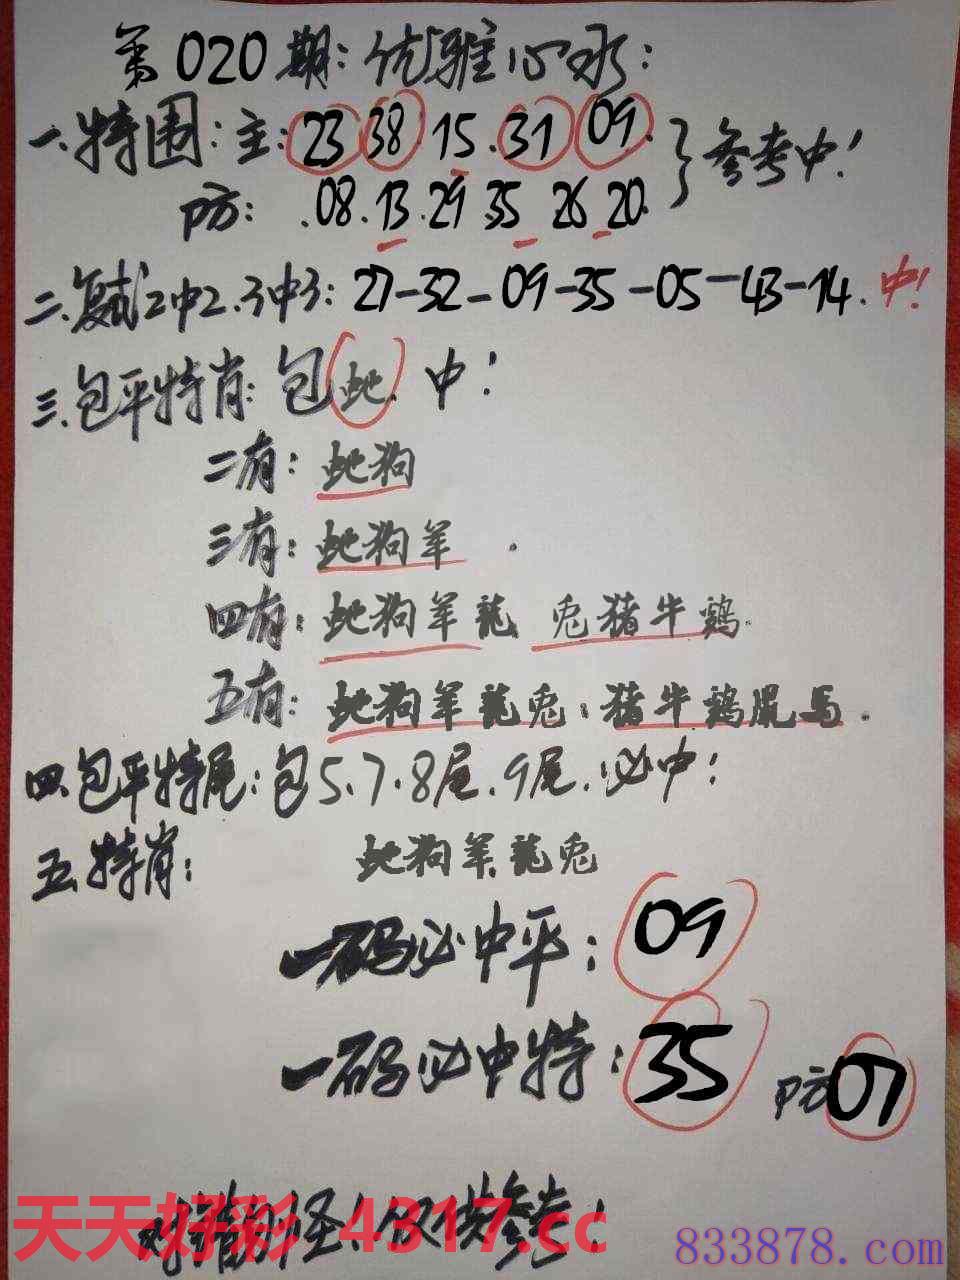 第020期:优雅心水:
一.特围:主:23 38.15.31 09.
参考中!
防: .08.13.29 35 26 20.
二.复式2中2.3中3:27-32-09-35-05-43-14.中!
三.包平特肖:包蛇.中!
二有:蛇狗
三有:蛇狗羊.
四有:蛇狗羊龍 兎猪牛鷄.
五有:蛇狗羊龍兎:猪牛鷄鼠馬.
四.包平特尾:包5.7.8尾.9尾.必中!
五.特肖: 蛇狗羊.龍兎
一码必中平:09
一码必中特:35 防07
对错勿怪!仅供参考!
天天好彩 4317.cc
833878.com